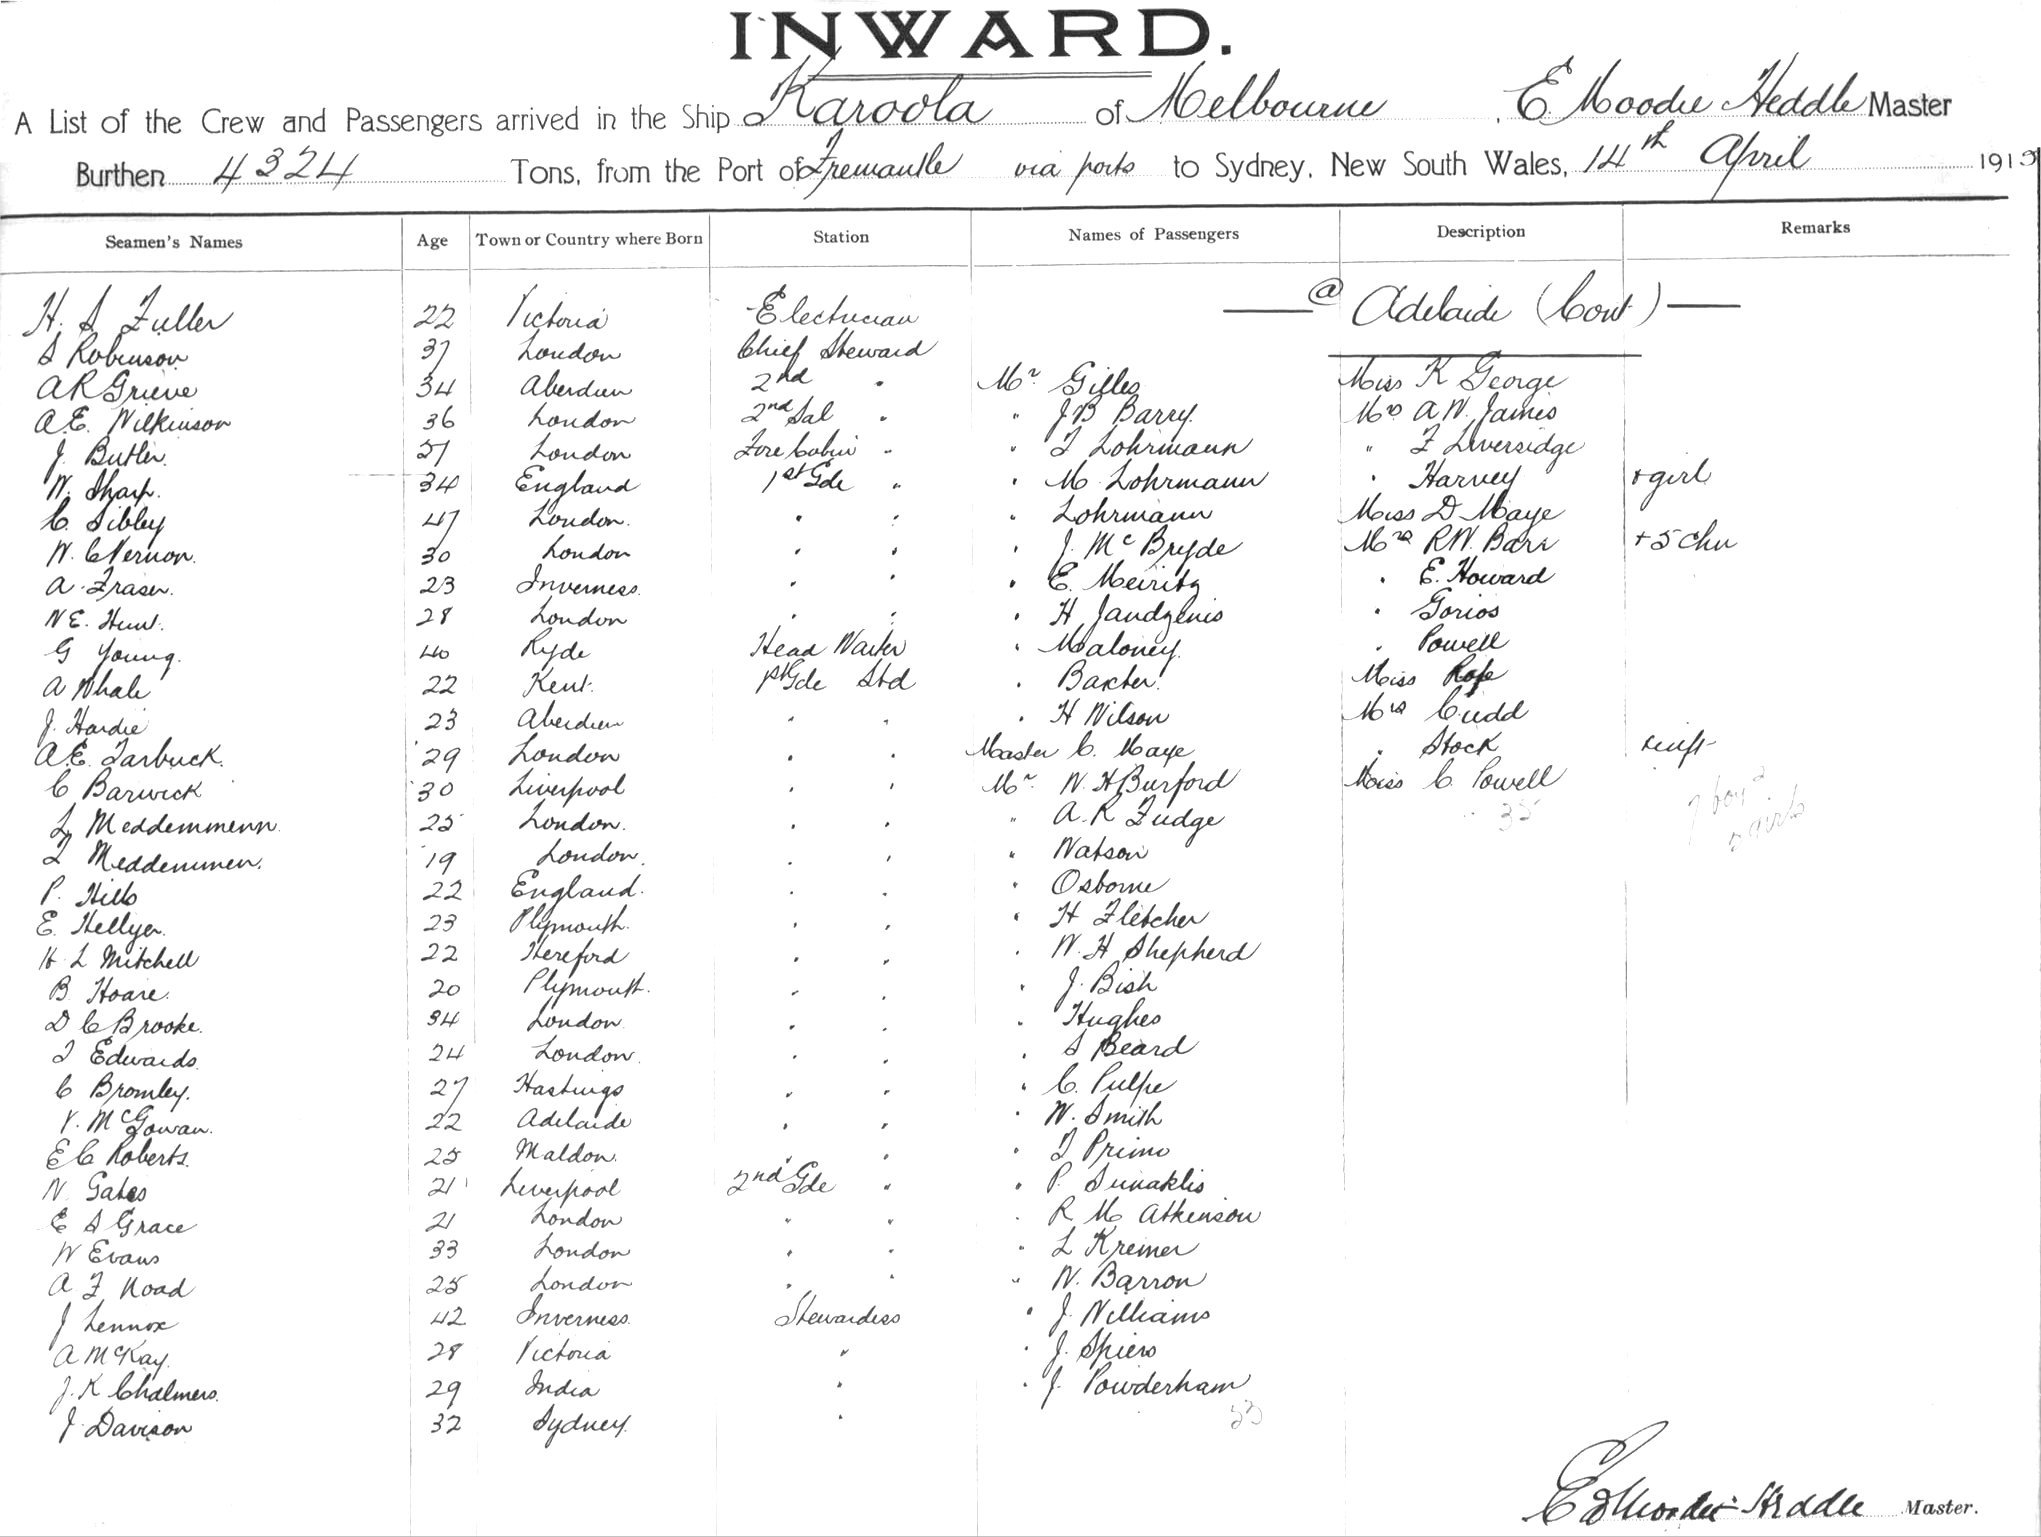 INWARD.
A List of the Crew and Passengers arrived in the Ship Karoola of Melbourne, E Moodie Heddle Master
Burthen 4324 Tons, from the Port of Fremantle via ports to Sydney, New South Wales, 14th April 191
Seamen's Names Age Town or Country where Born Station Names of Passengers Description Remarks
H. S Fuller 22 Victoria Electrician @ Adelaide (Cont)
S Robinson 37 London Chief Steward
A R Grieve 34 Aberdeen 2nd " Mr Gilles Miss K George
A. E. Wilkinson 36 London 2nd Sal " " J B Barry. Mrs A W. James
J. Butler. 51 London Fore Cabin " " T Lohrmann " F Liversidge
W. Sharp. 34 England 1st Gde " " M Lohrmann " Harvey + girl
C. Sibley 47 London. " " " Lohrmann Miss D Maye
W. C Vernon. 30 London " " " J. McBryde Mrs R W. Barr + 5 chn
A. Fraser. 23 Inverness. " " " E. Meiritz " E. Howard
W E. Hunt. 28 London " " " H Jandzenis " Gorios
G Young. 40 Ryde Head Waiter " Maloney. " Powell
A Whale 22 Kent. 1st Gde Std " Baxter. Miss Rofe
J. Hardie 23 Aberdeen " " " H Wilson Mrs Cudd
A. E. Tarbuck. 29 London " " Master C. Maye " Stock + inft
C Barwick 30 Liverpool " " Mr. W. H Burford Miss C. Powell
L Meddemmenn. 25 London. " " " A. R Fudge 35 7 boys
T Meddemmen. 19 London. " " " Watson 5 girls
P. Hills 22 England. " " " Osborne
E. Hellyer. 23 Plymouth. " " " H Fletcher
H L Mitchell 22 Hereford " " " W. H Shepherd
B. Hoare. 20 Plymouth. " " " J. Bish
D C Brooke. 34 London. " " " Hughes
T Edwards. 24 London. " " " S Beard
C Bromley. 27 Hastings " " " C. Pulpe
V. McGowan. 22 Adelaide " " " W. Smith
E C Roberts. 25 Maldon. " " " T Primo
W. Gates 21 Liverpool 2nd Gde " " P. Sunaklis
E S Grace 21 London " " " R M Atkinson
W Evans 33 London " " " L Kremer
A F Noad 25 London " " " W. Barron
J Lennox 42 Inverness. Stewardess " J. Williams
A McKay. 28 Victoria " " J. Spiers
J. K Chalmers. 29 India " " J. Powderham
J Davison 32 Sydney. " 33
E Moodie Heddle Master.